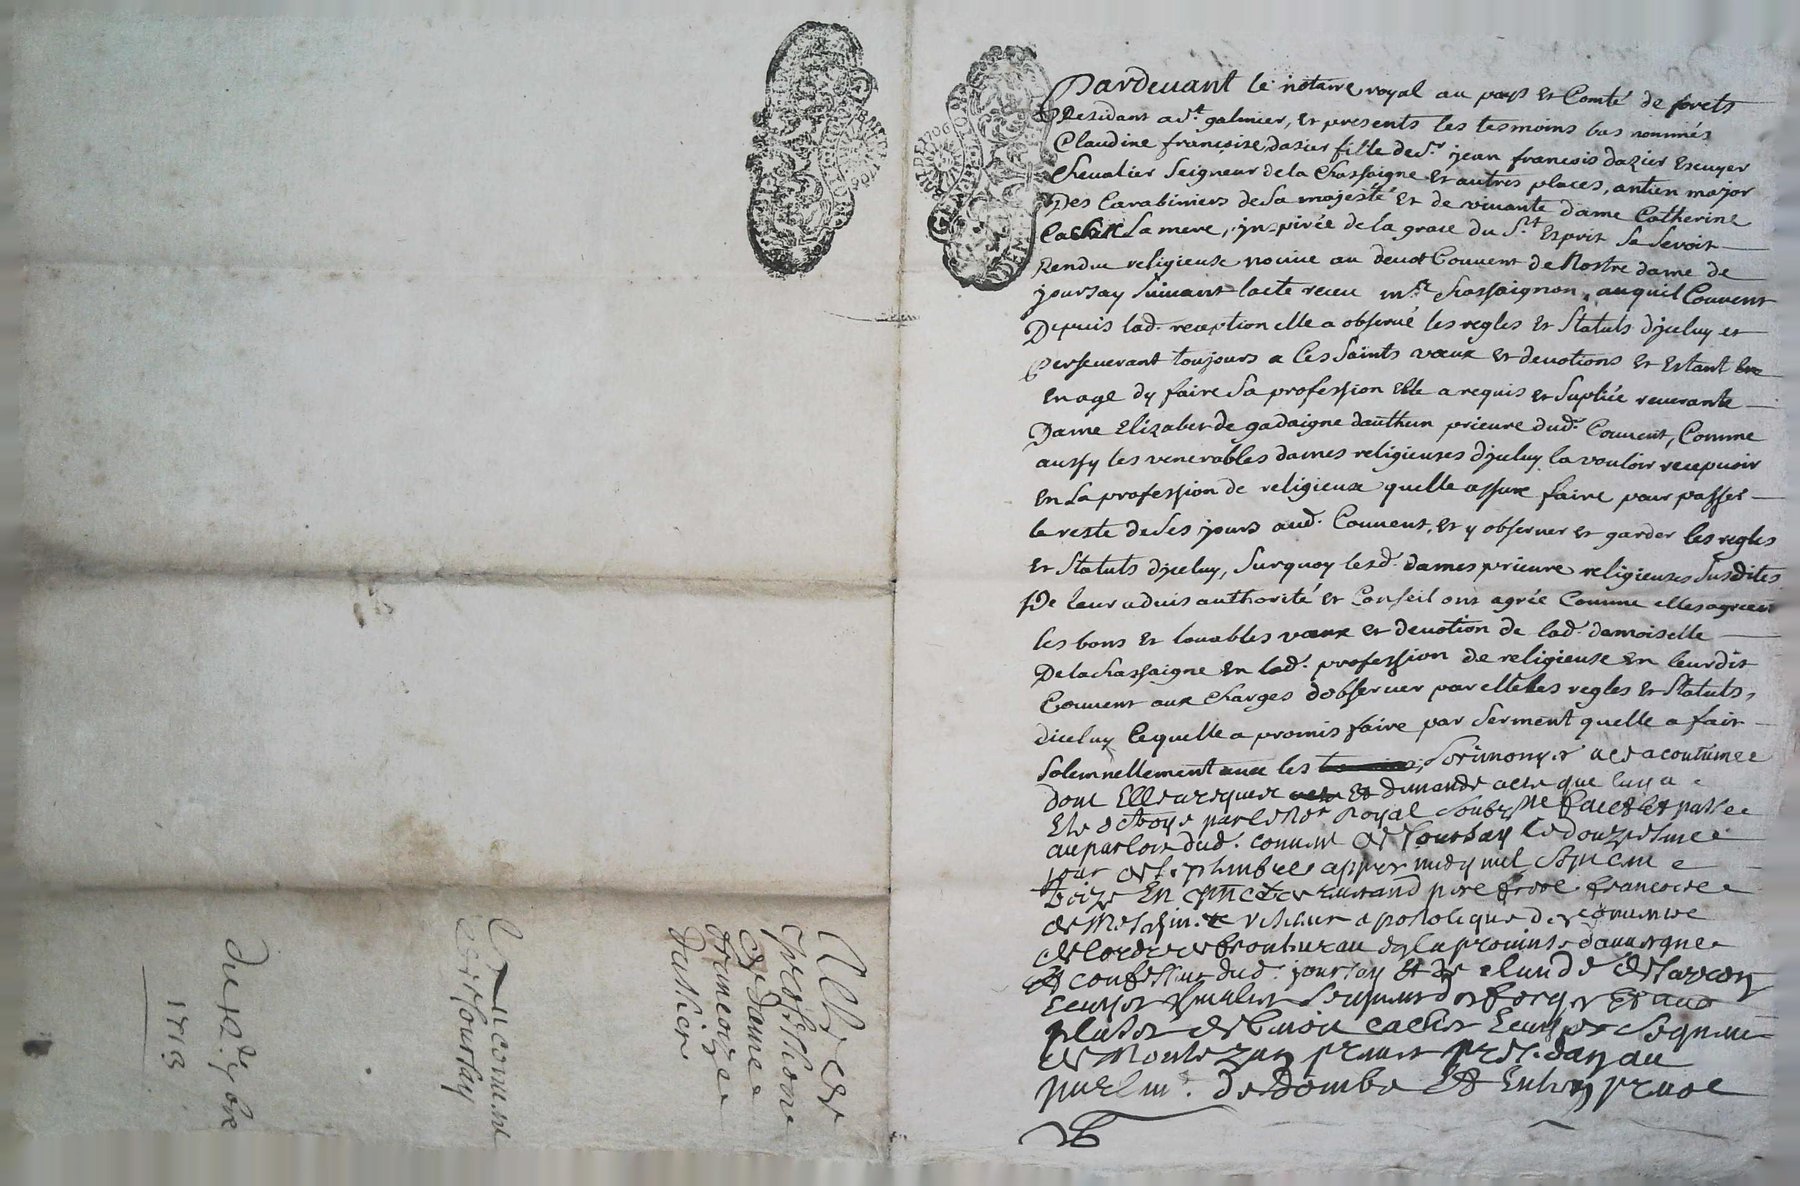 Pardeuant le notaire royal au pays et Comté de forets
Residant a St. galmier, et presents les tesmoins bas nommés
Claudine francoise dasier fille de Sr. jean francois dazier Escuyer
Cheualier Seigneur de la Chassaigne et autres places, antien major
Des Carabiniers de Sa majesté et de viuante dame Catherine
La mere, inspirée de la grace du St. Esprit Se Seroit
Rendue religieuse nouice au deuot Couuent de Nostre dame de
joursay Suiuant lacte receu Chassaignon, auquel Couuent
Depuis lad. reception elle a obserué les regles et Statuts djceluy et
perseuerant toujours a Ces Saints vœux et deuotions et Estant
En age dy faire Sa profession Elle a requis et Supliée reuerante
Dame Elizabet de gadaigne dauthun prieure dud. Couuent, Comme
aussy les venerables dames religieuses djceluy la vouloir recepuoir
En La profession de religieuse quelle assure faire pour passer
le reste de Ses jours aud. Couuent, et y obseruer et garder les regles
et Statuts djceluy, Surquoy lesd. dames prieure religieuses Susdites
De leur aduis authorité et Conseil ont agréé Comme elles agreent
les bons et louables vœux et deuotion de lad. damoiselle
Delachassaigne en lad. profession de religieuse en leurdit
Couuent aux Charges dobseruer par elle les regles et Statuts
diceluy Cequelle a promis faire par Serment quelle a fait
Solemnellement auec les Serimonyes acoutumee
dont Elle a requis et demandé acte que luy a
Este octroyé par le Nore Royal Soubzne faict et passe
au parloir dud. conuent de Joursay le douziesme
jour de Septembre appres midy mil Sept cent
treize En presence de reuerand pere frere francoise
de visiteur apostolique des
de lordre de en la prouinse dauuergne
Et confesseur dud. joursay Et de claude
Escuyer cheualier Seigneur des forges Et
places de cachet Escuyer Seigneur
de president au
parlem. de Dombe Et
Acte de
profession
de dame
francoize
dassier
Au conuent
de Joursay
du 12e 7bre
1713
GEN. DE LYON